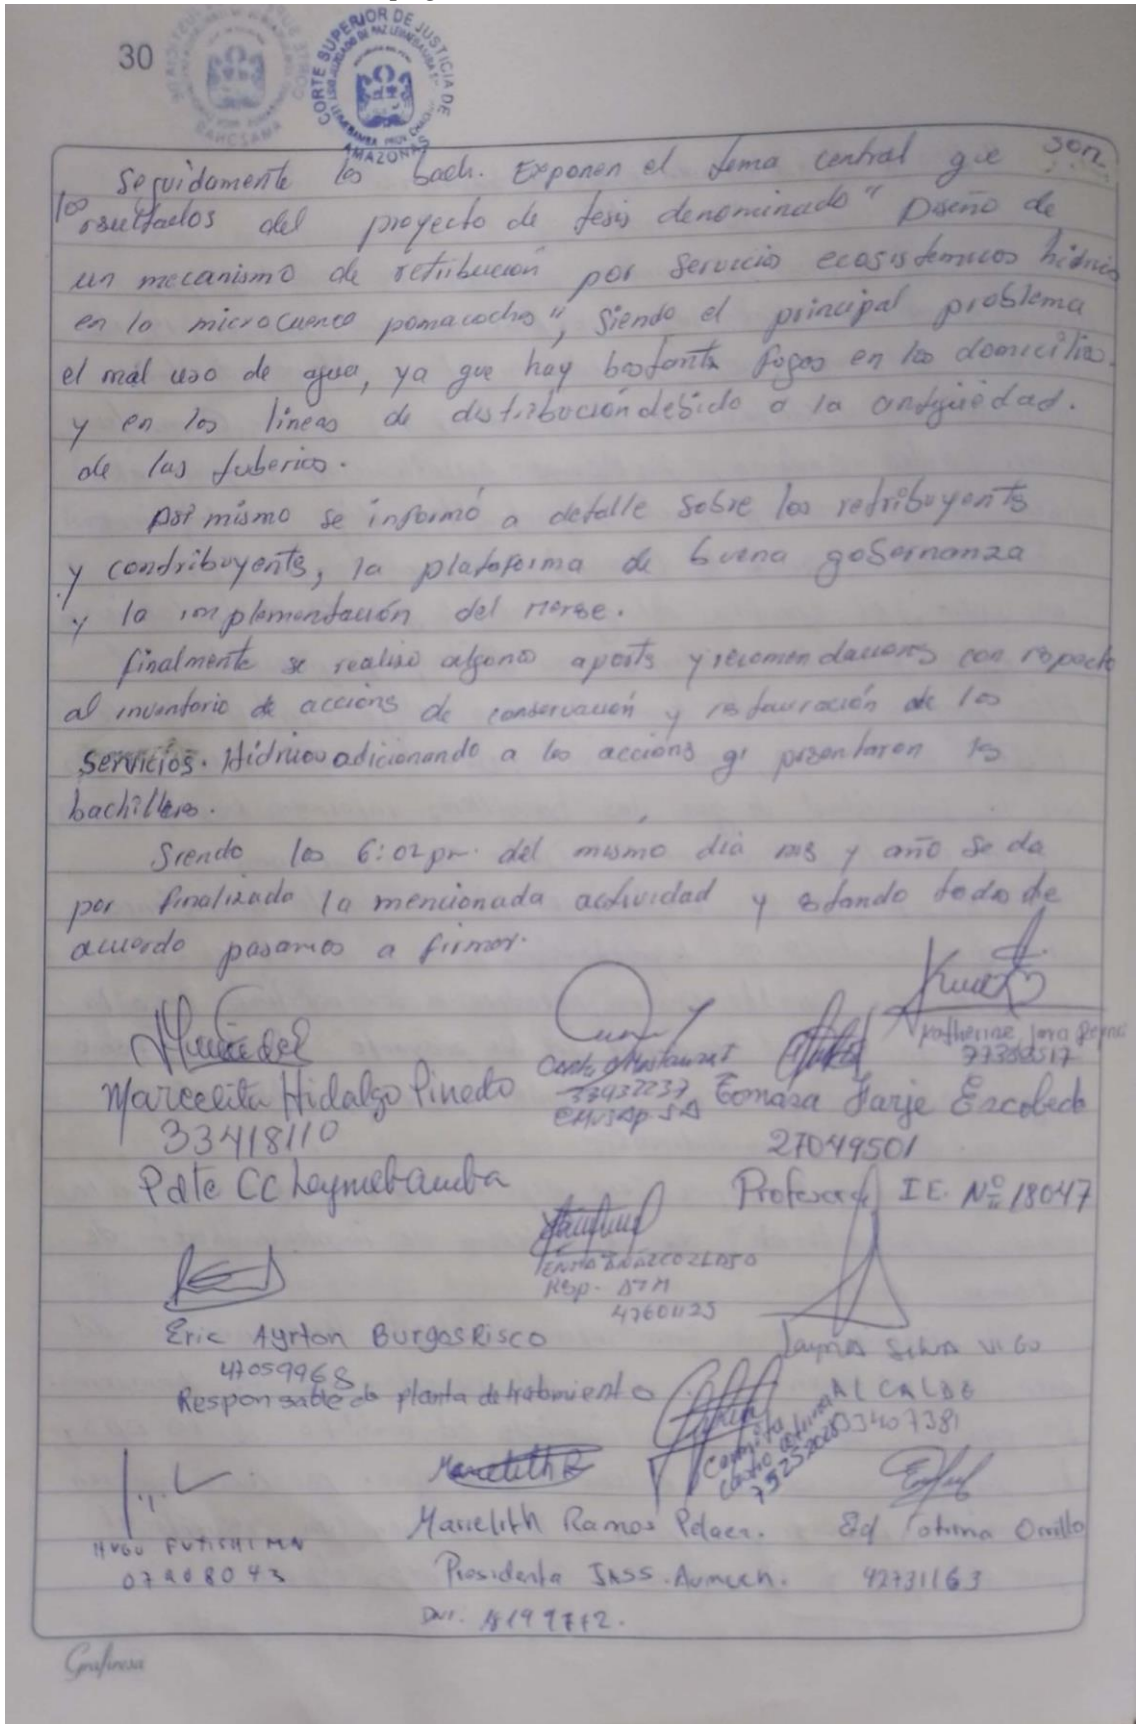 30
CORTE SUPERIOR DE JUSTICIA DE
AMAZONAS
Seguidamente los bach. Exponen el tema central que son
los resultados del proyecto de tesis denominado " Diseño de
un mecanismo de retribucion por Servicio ecosistemicos hidrico
en la microcuenca pomacocha", Siendo el principal problema
el mal uso de agua, ya que hay bastante fugas en los domicilios.
y en las lineas de distribucion debido a la antigüedad.
de las tuberias.
Asi mismo se informó a detalle sobre los retribuyents
y contribuyents, la plataforma de buena gobernanza
y la implementación del merse.
finalmente se realizo algunos aports y recomendacions con respecto
al inventario de accions de conservación y restauración de los
Servicios. Hidricos adicionando a las accions q' presentaron los
bachilleres.
Siendo las 6:02 pm. del mismo dia mes y año se da
por finalizada la mencionada actividad y estando todos de
acuerdo pasamos a firmar.
Katherine
77383517
Marcelita Hidalgo Pinedo
33937237
Tomasa Farje Escobedo
33418110
EMUSAP SA
27049501
Pdte CC Leymebamba
Profesora I E. Nº 18047
Resp. ATM
47601123
Eric Ayrton Burgos Risco
SILVA VIGO
47059968
ALCALDE
Responsable de planta de tratamiento
33407381
75252028
Marielith R
Marielith Ramos
Ed Orrillo
HUGO
Presidenta JASS.
42731163
Grafinesa